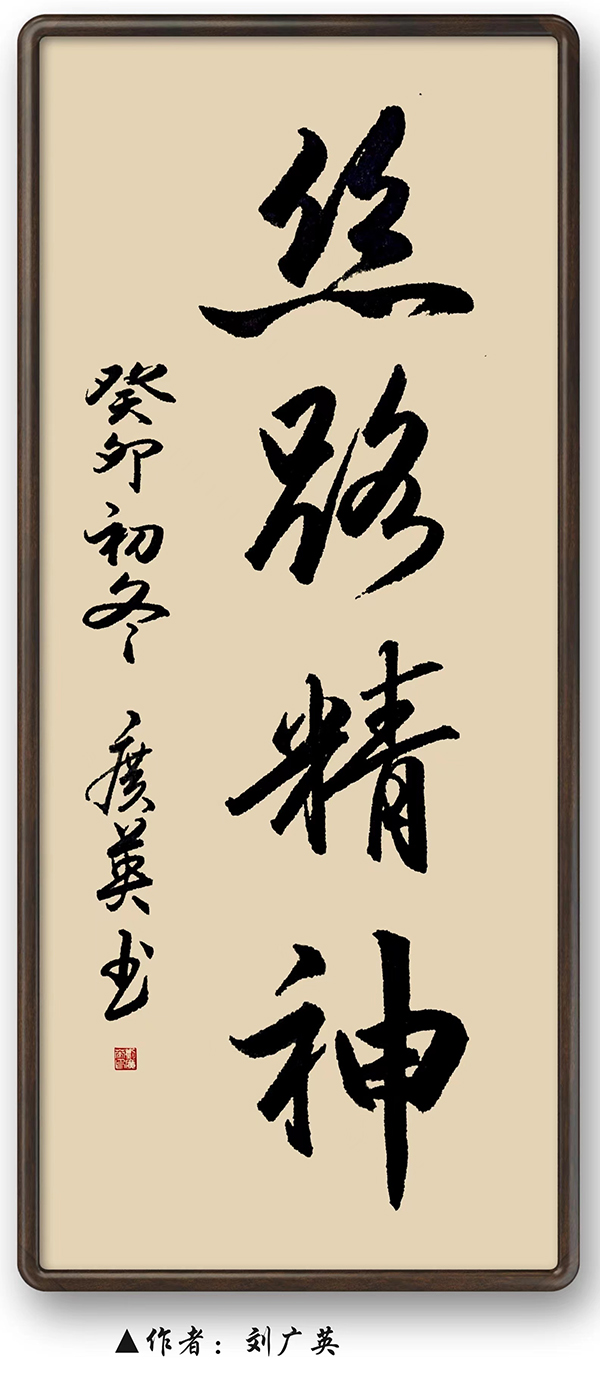 丝路精神
癸卯初冬 广英书
▲作者：刘广英